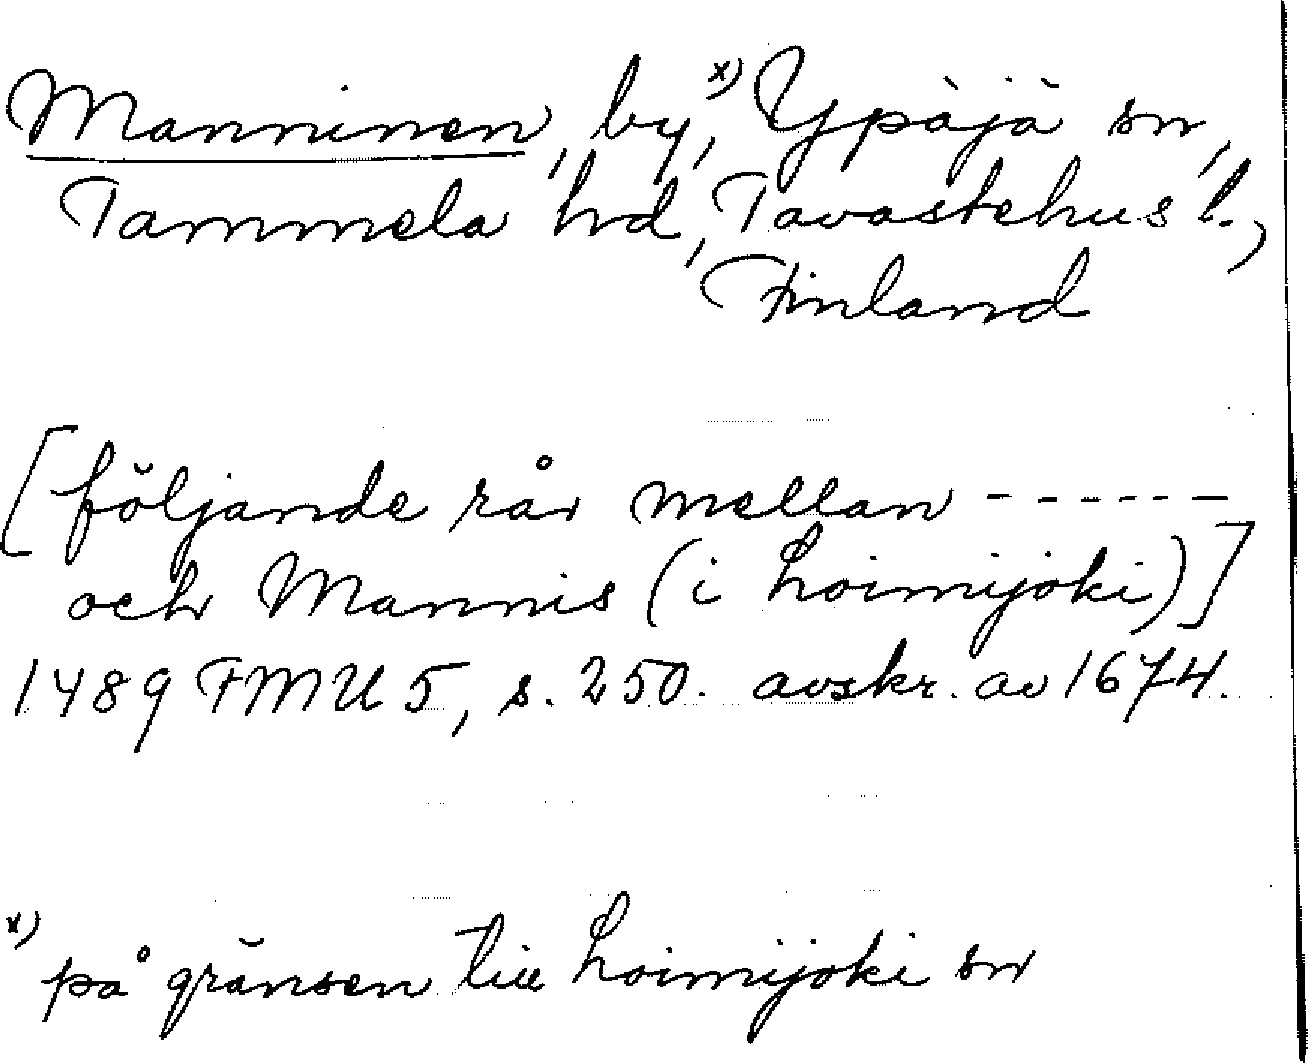 Manninen, by,x) Ypäjä sn,
Tammela hd, Tavastehus l.,
Finland
[följande rår mellan ------
och Mannis (i Loimijoki)]
1489 FMU 5, s. 250. avskr. av 1674.
x) på gränsen till Loimijoki sn